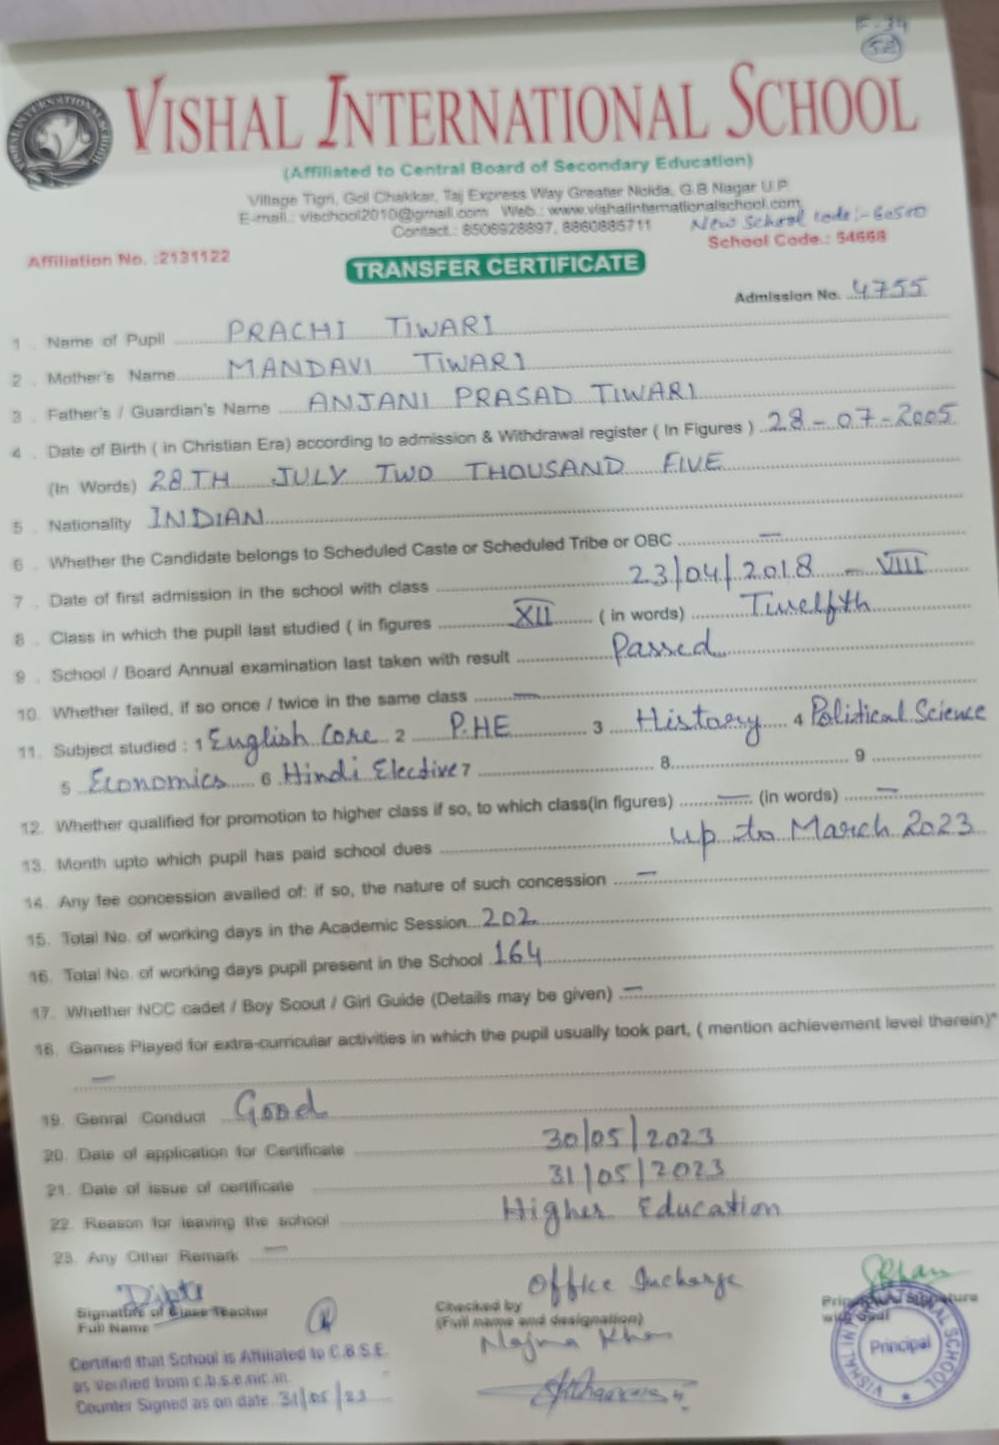 F-34
52
VISHAL INTERNATIONAL SCHOOL
(Affiliated to Central Board of Secondary Education)
Village Tigri, Gol Chakkar, Taj Express Way Greater Noida, G.B Nagar U.P.
E-mail.: vischool2010@gmail.com Web.: www.vishalinternationalschool.com
Contact.: 8506928897, 8860885711 New School code:- 60500
Affiliation No. :2131122 School Code.: 54668
TRANSFER CERTIFICATE
Admission No. 4755
1 . Name of Pupil PRACHI TIWARI
2 . Mother's Name MANDAVI TIWARI
3 . Father's / Guardian's Name ANJANI PRASAD TIWARI
4 . Date of Birth ( in Christian Era) according to admission & Withdrawal register ( In Figures ) 28-07-2005
(In Words) 28TH JULY TWO THOUSAND FIVE
5 . Nationality INDIAN
6 . Whether the Candidate belongs to Scheduled Caste or Scheduled Tribe or OBC —
7 . Date of first admission in the school with class 23/04/2018 - VIII
8 . Class in which the pupil last studied ( in figures XII ( in words) Twelfth
9 . School / Board Annual examination last taken with result Passed
10. Whether failed, if so once / twice in the same class —
11. Subject studied : 1 English Core 2 P.HE 3 History 4 Political Science
5 Economics 6 Hindi Elective 7 8 9
12. Whether qualified for promotion to higher class if so, to which class(in figures) — (in words) —
13. Month upto which pupil has paid school dues up to March 2023
14. Any fee concession availed of: if so, the nature of such concession —
15. Total No. of working days in the Academic Session 202
16. Total No. of working days pupil present in the School 164
17. Whether NCC cadet / Boy Scout / Girl Guide (Details may be given) —
18. Games Played for extra-curricular activities in which the pupil usually took part, ( mention achievement level therein)*
—
19. Genral Conduct Good
20. Date of application for Certificate 30/05/2023
21. Date of issue of certificate 31/05/2023
22. Reason for leaving the school Higher Education
23. Any Other Remark —
Dipti Office Incharge
Signature of Class Teacher Checked by
Full Name (Full name and designation) with seal
Najma Khan
Certified that School is Affiliated to C.B.S.E.
as Verified from c.b.s.e.nic.in.
Counter Signed as on date 31/05/23
Principal